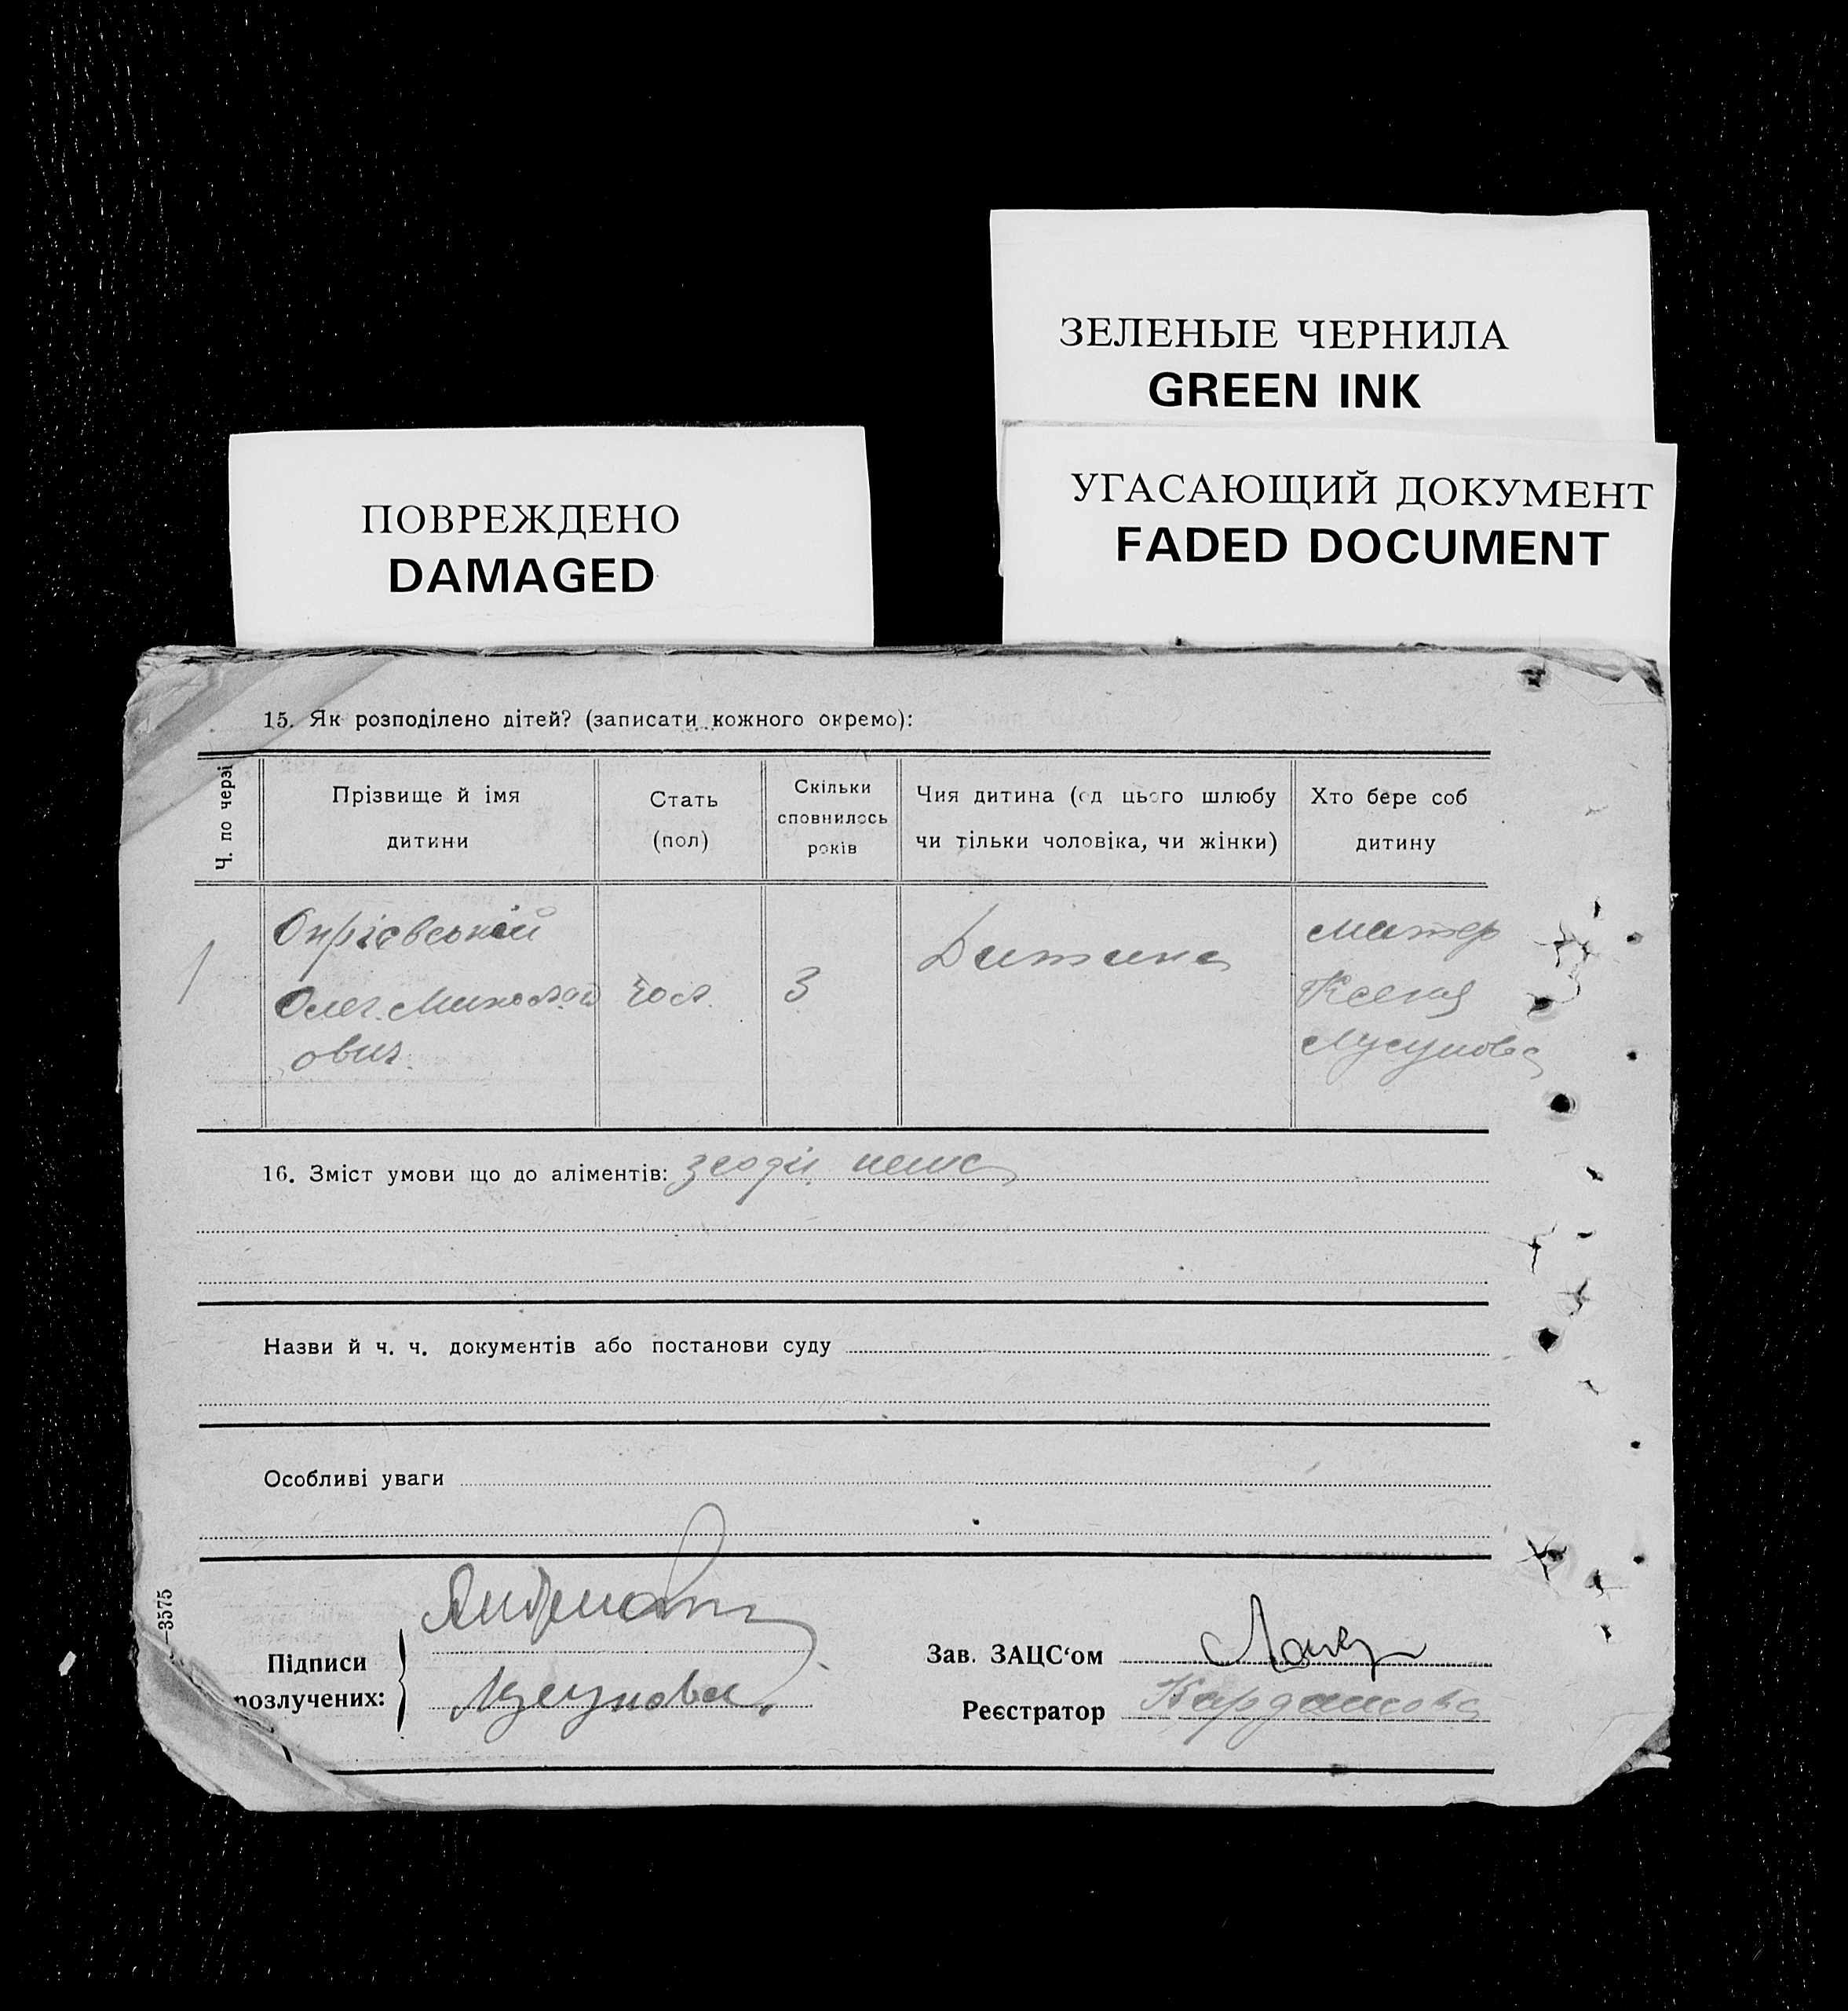 ЗЕЛЕНЫЕ ЧЕРНИЛА
GREEN INK
УГАСАЮЩИЙ ДОКУМЕНТ
FADED DOCUMENT
ПОВРЕЖДЕНО
DAMAGED
15. Як розподілено дітей? (записати кожного окремо):
Ч. по черзі
Прізвище й імя
дитини
Стать
(пол)
Скільки
сповнилось
років
Чия дитина (од цього шлюбу
чи тільки чоловіка, чи жінки)
Хто бере соб
дитину
1
Олег Миколай
ович
чол.
3
Дитина
матер
Ксенія
16. Зміст умови що до аліментів: згоди нема
Назви й ч. ч. документів або постанови суду
Особливі уваги
—3575
Підписи
розлучених:
Зав. ЗАЦС‘ом
Реєстратор Кардашова